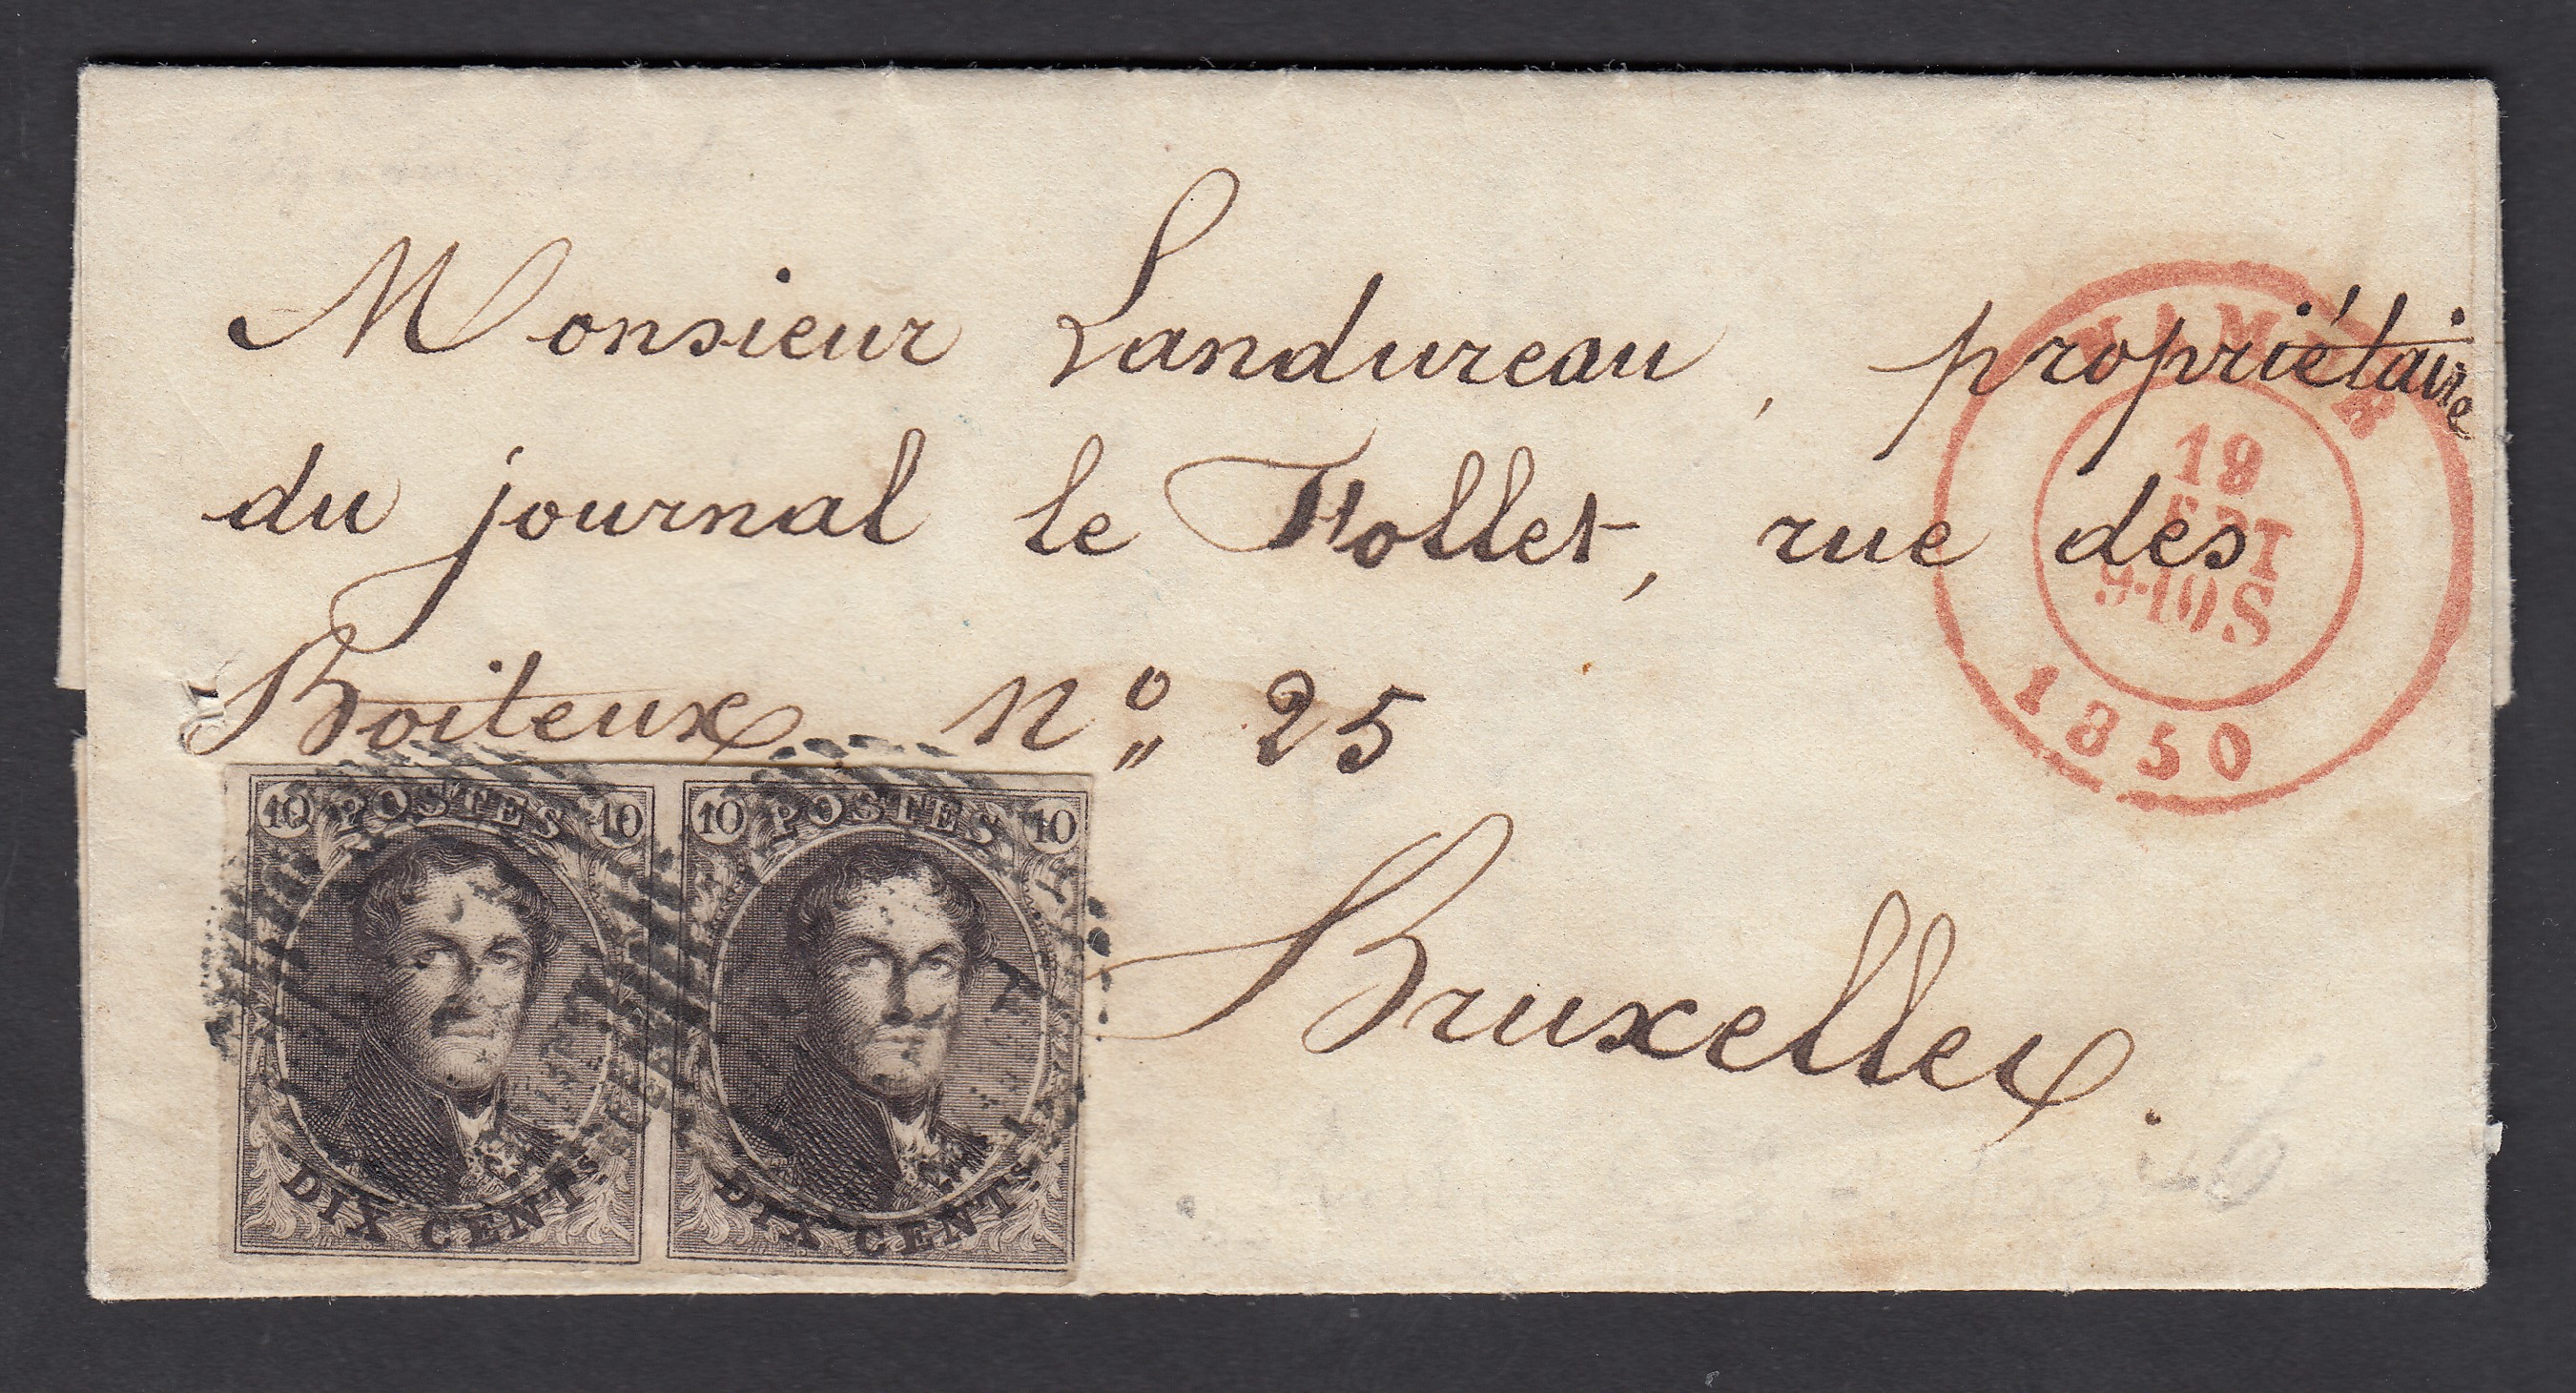 Monsieur Landureau, propriétaire
du journal le Follet, rue des
Boiteux No 25
Bruxelles.
NAMUR
19
SEPT
9-10S
1850
10 POSTES 10
DIX CENTS.
10 POSTES 10
DIX CENTS.